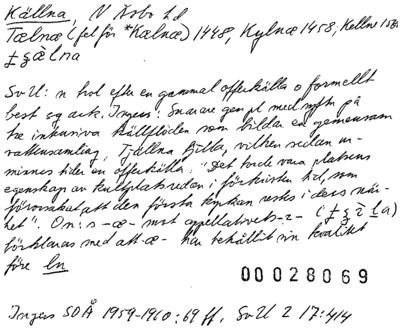 Källna, N Åsbo hd
Tælnæ (fel för *Kælnæ) 1448, Kylnæ 1458, Kellne
SvU: n hol efter en gammal offerkälla o formellt
best sg ack. Ingers: Snarare gen pl med syftn på
tre inkursiva källflöden som bilda en gemensam
vattensamling, Tjällna källa, vilken sedan ur-
minnes tider en offerkälla. "Det torde vara platsens
egenskap av kultplats redan i förkristen tid, som
förorsakat att den första kyrkan restes i dess när-
het". On:s -æ- mot appellativets -ɛ-
förklaras med att -æ- har behållit sin kvalitet
före ln
00028069
Ingers SOÅ 1959-1960:69 ff, SvU 2 17:414